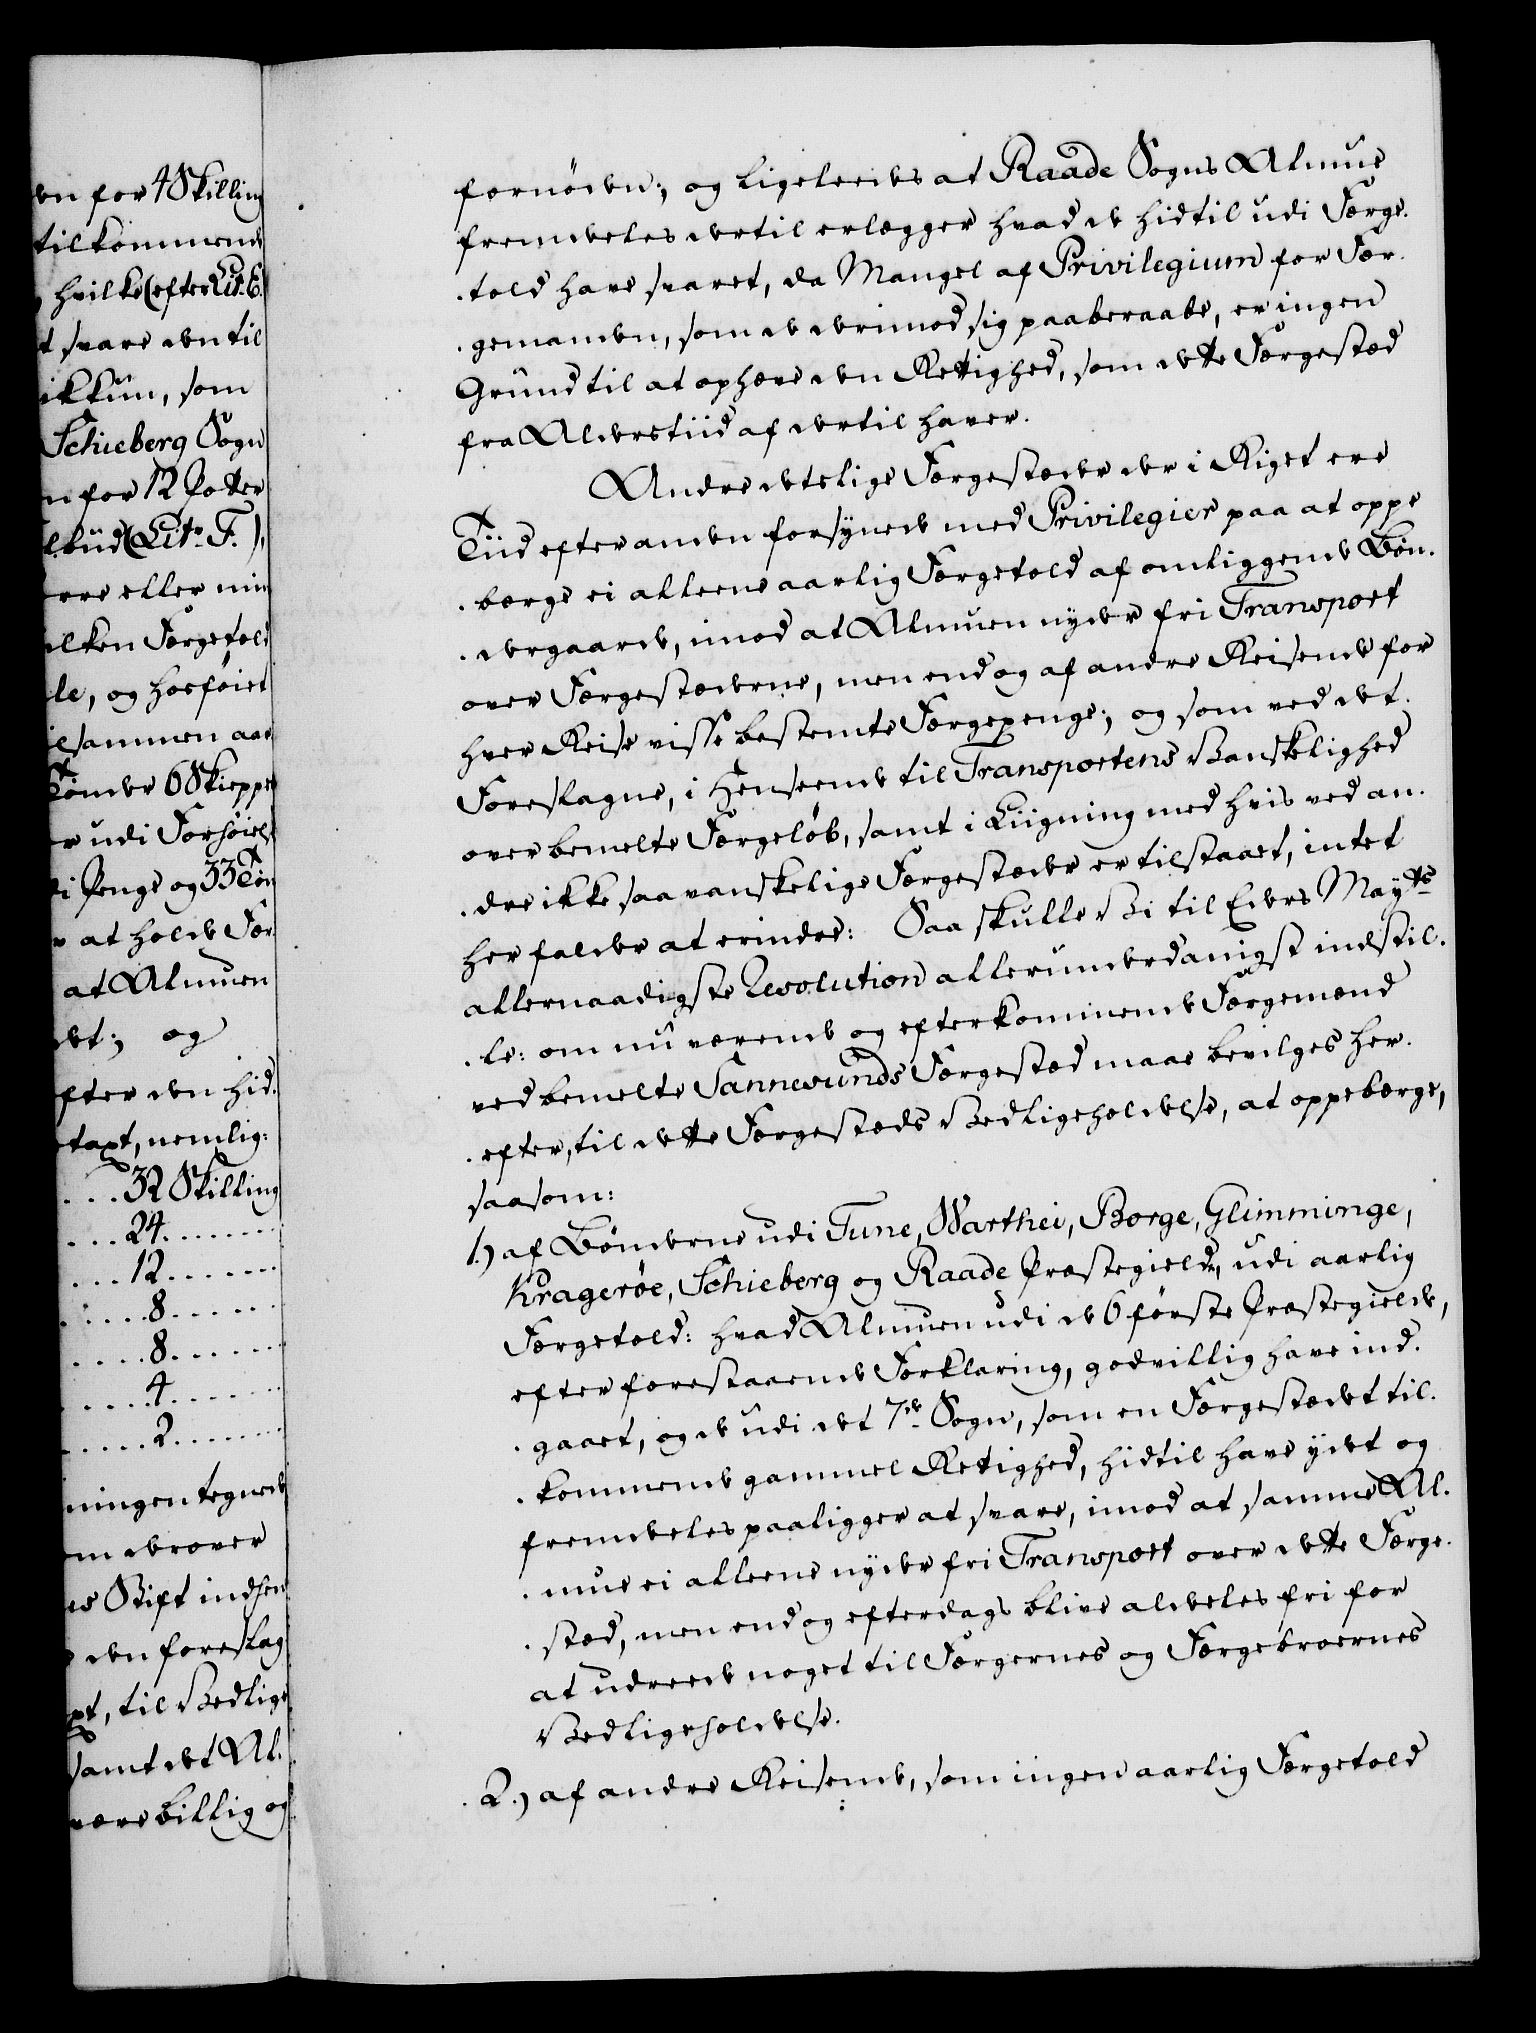 en for 4 Skilling
tilkommende
hvilke (efter Lit. E.
t svare den til
ikkun, som
Schieberg Sogn
n for 12 Potter
lbüd (Litr. F.),
erre eller min
ilken Færgetold
le, og hosföiet
ilsammen aar
Tönder 6 Skiepper
r udi Forhöiels
i Penge og 33 Tön
r at holde Fær
at Almuen
det; og
fter den hid.
taxt, nemlig:
... 32 Skilling
... 24 .......
... 12 .......
.... 8 ......
.... 8 ......
.... 4 .......
..... 2 .......
ningen tegnede
m derover
es Stift indsen
e den foreslag
xt, til Vedlige
samt det Al.
være billig og
fornöden; og ligeleedes at Raade Sogns Almue
fremdeles dertil erlægger hvad de hidtil udi Færge.
. told have svaret, da Mangel af Privilegium for Fær.
. gemanden, som de derimod sig paaberaabe, er ingen
Grund til at ophæve den Rettighed, som dette Færgestæd
fra Alderstiid af dertil haver.
Andre deslige Færgestæder der i Riget ere
Tiid efter anden forsynede med Privilegier paa at oppe
. børge ei alleene aarlig Færgetold af omliggende Bön.
. dergaarde, imod at Almuen nyder fri Transport
over Færgestæderne, men endog af andre Reisende for
hver Reise visse bestemte Færgepenge; og som ved det
Foreslagne, i Henseende til Transportens Vanskelighed
over bemelte Færgelöb, samt i Liigning med hvis ved an.
. dre ikke saa vanskelige Færgestæder er tilstaaet, intet
her falder at erindre: Saa skulle Vi til Eders Mayts
allernaadigste Resolution allerunderdanigst indstil.
. le: om nu værende og efterkommende Færgemænd
ved bemelte Sannesunds Færgestæd maae bevilges her.
. efter, til dette Færgestæds Vedligeholdelse, at oppebørge,
saasom:
1.) af Bönderne udi Tune, Warthei, Borge, Glimminge,
Kragerøe, Schieberg og Raade Præstegield, udi aarlig
Færgetold: hvad Almuen udi de 6 förste Præstegielde,
efter forestaaende Forklaring, godvillig have ind.
. gaaet, og de udi det 7de Sogn, som en Færgestædet til.
. kommende gammel Rettighed, hidtil have ydet og
fremdeles paaligger at svare, imod at samme Al.
. mue ei alleene nyder fri Transport over dette Færge.
. stæd, men endog efterdags blive aldeles fri for
at udreede noget til Færgernes og Færgebroernes
Vedligeholdelse.
2.) af andre Reisende, som ingen aarlig Færgetold